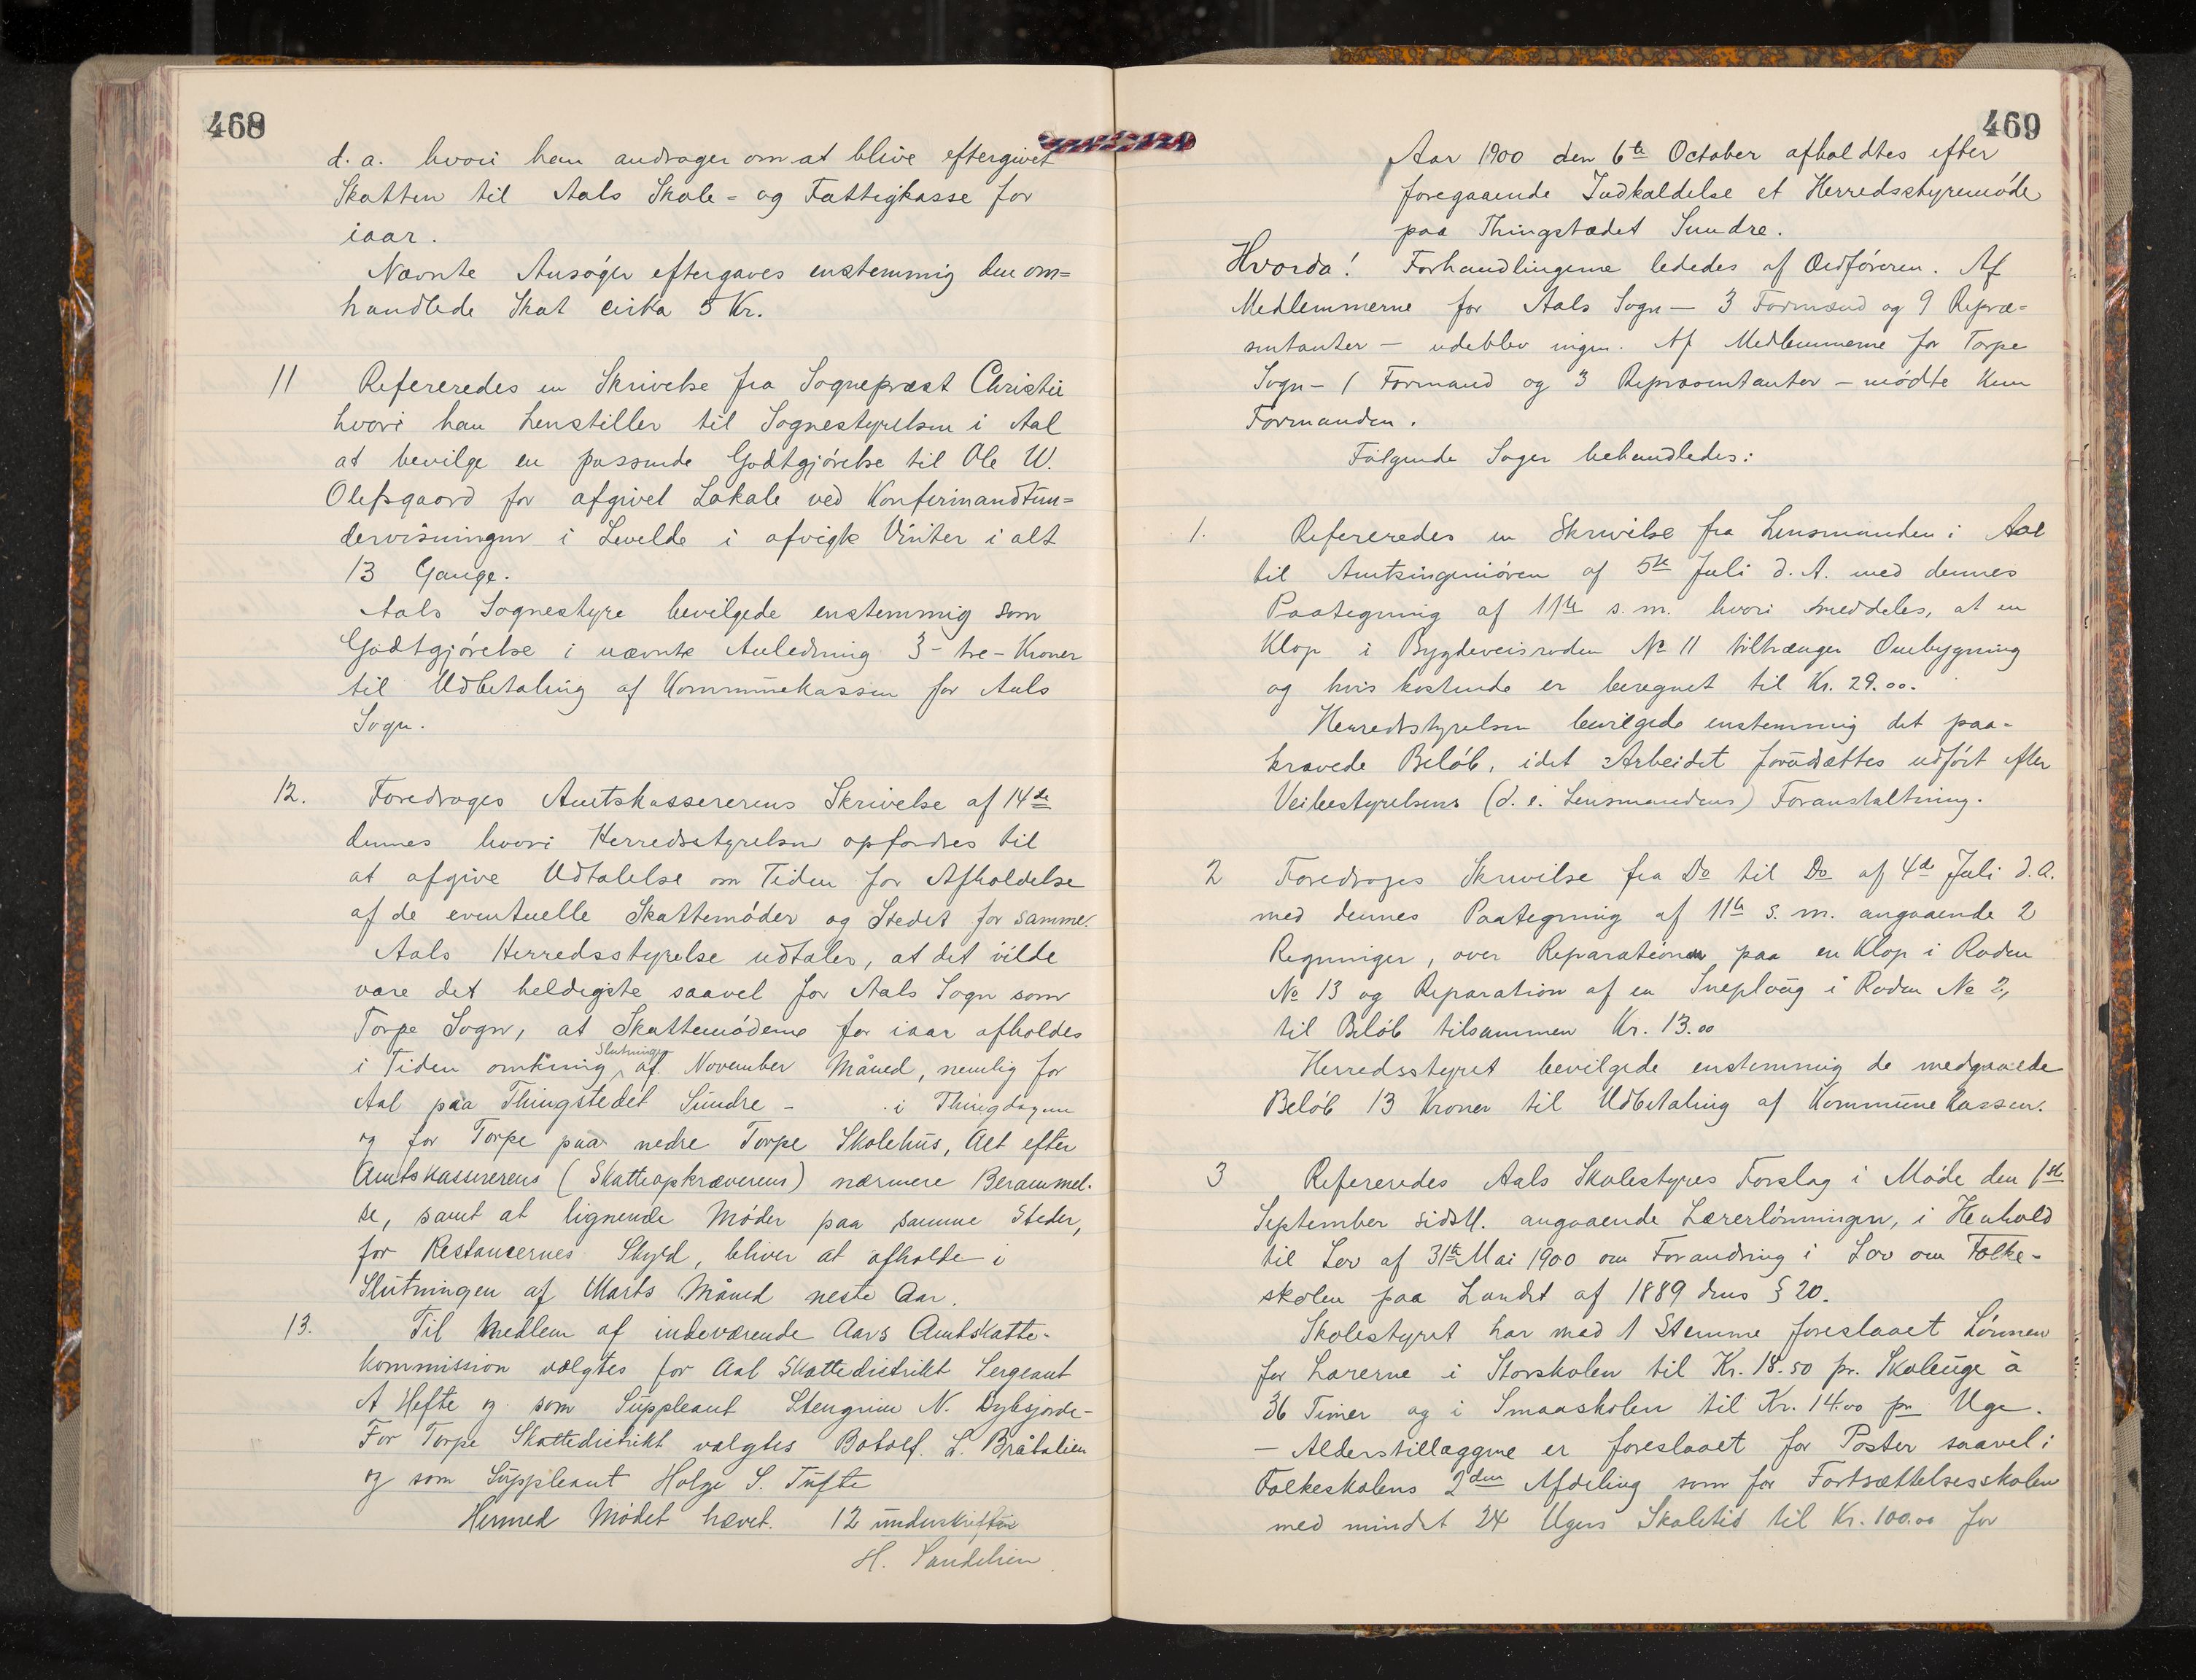 468
d. a. hvori han andrager om at blive eftergivet
Skatten til Aals Skole- og Fattigkasse for
iaar.
Nævnte Ansøger eftergaves enstemmig den om=
handlede Skat cirka 5 Kr.
11 Refereredes en Skrivelse fra Sognepræst Christie
hvori han henstiller til Sognestyrelsen i Aal
at bevilge en passende Godtgjørelse til Ole W.
Olefsgaard for afgivet Lokale ved Konfirmandtun=
dervisningen i Levelde i afvigte Vinter i alt
13 Gange.
Aals Sognestyre bevilgede enstemmig som
Godtgjørelse i nævnte Anledning 3 - tre - Kroner
til Udbetaling af Kommunekassen for Aals
Sogn.
12. Foredroges Amtskassererens Skrivelse af 14de
dennes hvori Herredsstyrelsen opfordres til
at afgive Udtalelse om Tiden for Afholdelse
af de eventuelle Skattemøder og Stedet for samme.
Aals Herredsstyrelse udtaler, at det vilde
være det heldigste saavel for Aals Sogn som
Torpe Sogn, at Skattemøderne for iaar afholdes
i Tiden omkring Slutningen af November Måned, nemlig for
Aal paa Thingstedet Sundre - i Thingdagene
og for Torpe paa nedre Torpe Skolehus, Alt efter
Amtskassererens (Skatteopkræverens) nærmere Berammel-
se, samt at lignende Møder paa samme Steder,
for Restancernes Skyld, bliver at afholde i
Slutningen af Marts Måned neste Aar.
13. Til Medlem af indeværende Aars Amtskatte-
kommission valgtes for Aal Skattedistrikt Sergeant
A Hefte og som Suppleant Stengrim N. Dyksjorde-
For Torpe Skattedistrikt valgtes Botolf. L. Bråtalien
og som Suppleant Holge S. Tufte
Hermed Mødet hævet. 12 underskrifter
H. Sandelien
469
Aar 1900 den 6te October afholdtes efter
foregaaende Indkaldelse et Herredsstyremøde
paa Thingstædet Sundre.
Hvorda! Forhandlingerne lededes af Ordføreren. Af
Medlemmerne for Aals Sogn — 3 Formænd og 9 Repræ=
sentanter — udeblev ingen. Af Medlemmerne for Torpe
Sogn — 1 Formand og 3 Repræsentanter — mødte kun
Formanden.
Følgende Sager behandledes:
1. Refereredes en Skrivelse fra Lensmanden i Aal
til Amtsingeniøren af 5te Juli d. A. med dennes
Paategning af 11te s. m. hvori meddeles, at en
Klop i Bygdeveisroden No 11 tiltrænger Ombygning
og hvis kostende er beregnet til Kr. 29.00.
Herredsstyrelsen bevilgede enstemmig det paa-
krævede Beløb, idet Arbeidet forudsættes udført efter
Veibestyrelsens (d. e. Lensmandens) Foranstaltning.
2 Foredroges Skrivelse fra Do til Do af 4de Juli d. a.
med dennes Paategning af 11te s. m. angaaende 2
Regninger, over Reparationen paa en Klop i Roden
No 13 og Reparation af en Sneploug i Roden No 2,
til Beløb tilsammen Kr. 13.00
Herredsstyret bevilgede enstemmig de medgaaede
Beløb 13 Kroner til Udbetaling af Kommunekassen.
3 Refereredes Aals Skolestyres Forslag i Møde den 1ste
September sidstl. angaaende Lærerlønningen, i Henhold
til Lov af 31te Mai 1900 om Forandring i Lov om Folke-
skolen paa Landet af 1889 dens § 20.
Skolestyret har med 1 Stemme foreslaaet Lønnen
for Lærerne i Storskolen til Kr. 18.50 pr. Skoleuge à
36 Timer og i Smaaskolen til Kr. 14.00 pr Uge.
— Alderstillæggene er foreslaaet for Poster saavel i
Folkeskolens 2den Afdeling som for Fortsættelsesskolen
med mindst 24 Ugers Skoletid til Kr. 100.00 for